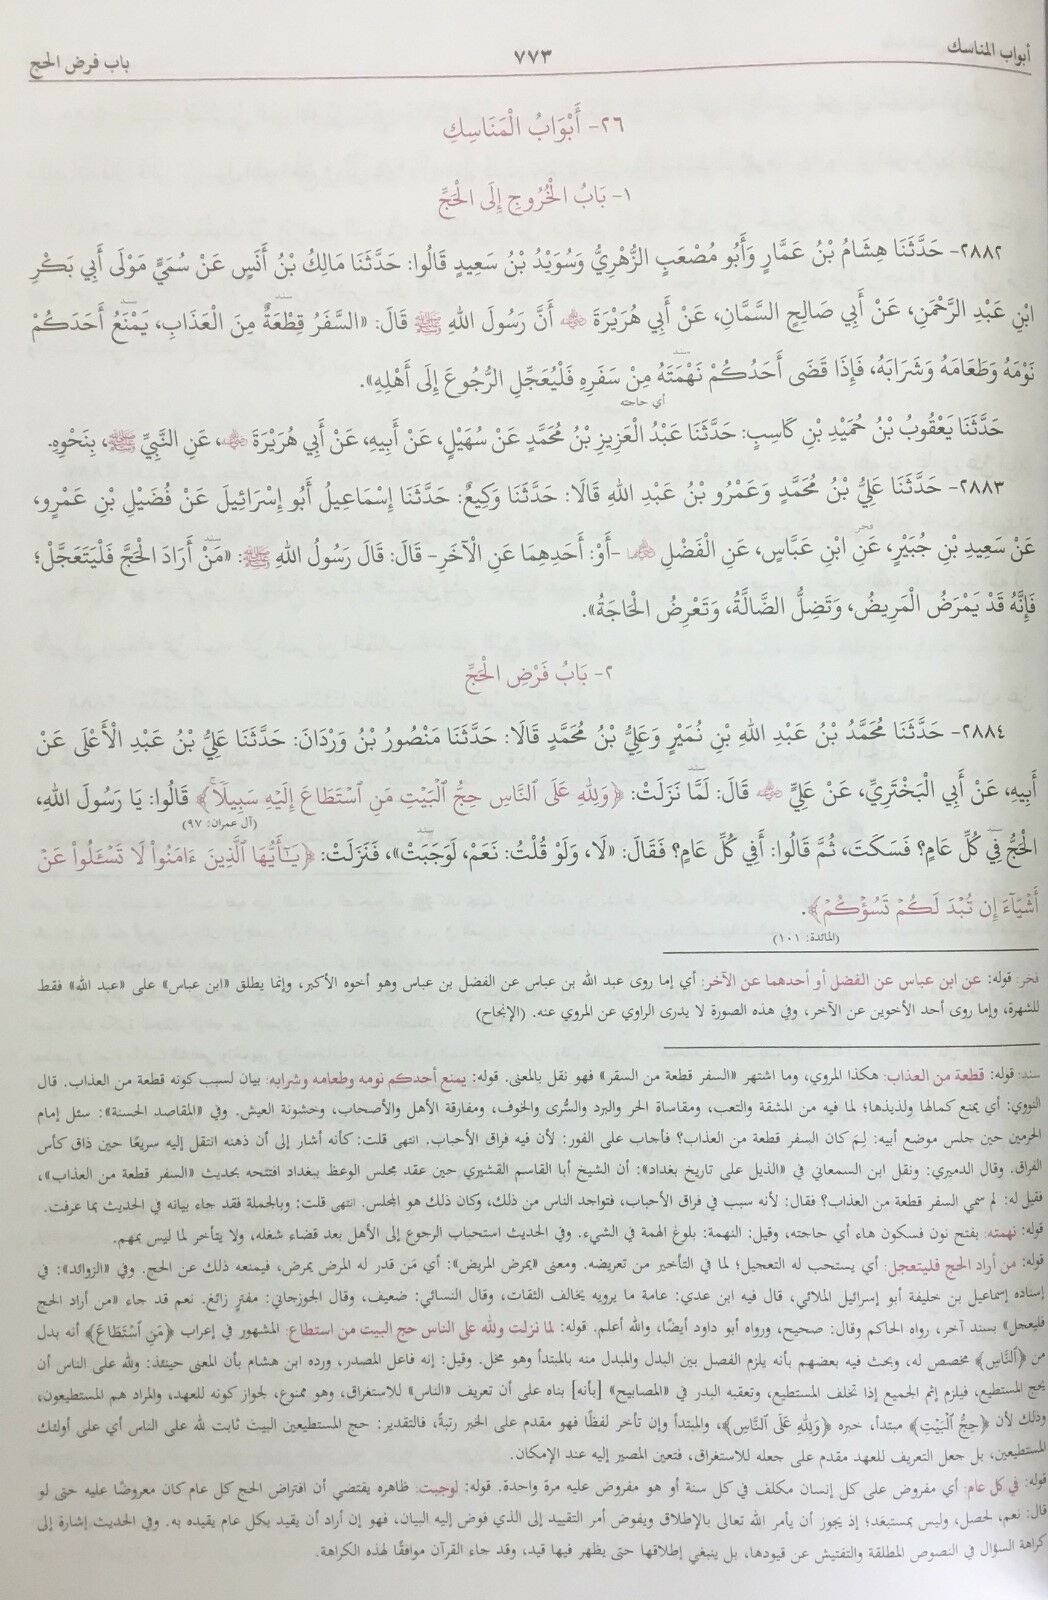 أبواب المناسك
٧٧٣
باب فرض الحج
٢٦- أَبْوَابُ الْمَنَاسِكِ
١- بَابُ الْخُرُوجِ إِلَى الْحَجِّ
٢٨٨٢- حَدَّثَنَا هِشَامُ بْنُ عَمَّارٍ وَأَبُو مُصْعَبٍ الزُّهْرِيُّ وَسُوَيْدُ بْنُ سَعِيدٍ قَالُوا: حَدَّثَنَا مَالِكُ بْنُ أَنَسٍ عَنْ سُمَيٍّ مَوْلَى أَبِي بَكْرِ
ابْنِ عَبْدِ الرَّحْمَنِ، عَنْ أَبِي صَالِحٍ السَّمَّانِ، عَنْ أَبِي هُرَيْرَةَ ﵁ أَنَّ رَسُولَ اللهِ ﷺ قَالَ: «السَّفَرُ قِطْعَةٌ مِنَ الْعَذَابِ، يَمْنَعُ أَحَدَكُمْ
نَوْمَهُ وَطَعَامَهُ وَشَرَابَهُ، فَإِذَا قَضَى أَحَدُكُمْ نَهْمَتَهُ مِنْ سَفَرِهِ فَلْيُعَجِّلِ الرُّجُوعَ إِلَى أَهْلِهِ».
أي حاجته
حَدَّثَنَا يَعْقُوبُ بْنُ حُمَيْدِ بْنِ كَاسِبٍ: حَدَّثَنَا عَبْدُ الْعَزِيزِ بْنُ مُحَمَّدٍ عَنْ سُهَيْلٍ، عَنْ أَبِيهِ، عَنْ أَبِي هُرَيْرَةَ ﵁، عَنِ النَّبِيِّ ﷺ، بِنَحْوِهِ.
٢٨٨٣- حَدَّثَنَا عَلِيُّ بْنُ مُحَمَّدٍ وَعَمْرُو بْنُ عَبْدِ اللهِ قَالَا: حَدَّثَنَا وَكِيعٌ: حَدَّثَنَا إِسْمَاعِيلُ أَبُو إِسْرَائِيلَ عَنْ فُضَيْلِ بْنِ عَمْرٍو،
عَنْ سَعِيدِ بْنِ جُبَيْرٍ، عَنِ ابْنِ عَبَّاسٍ، عَنِ الْفَضْلِ ﵄ -أَوْ: أَحَدِهِمَا عَنِ الْآخَرِ- قَالَ: قَالَ رَسُولُ اللهِ ﷺ: «مَنْ أَرَادَ الْحَجَّ فَلْيَتَعَجَّلْ؛
فَإِنَّهُ قَدْ يَمْرَضُ الْمَرِيضُ، وَتَضِلُّ الضَّالَّةُ، وَتَعْرِضُ الْحَاجَةُ».
٢- بَابُ فَرْضِ الْحَجِّ
٢٨٨٤- حَدَّثَنَا مُحَمَّدُ بْنُ عَبْدِ اللهِ بْنِ نُمَيْرٍ وَعَلِيُّ بْنُ مُحَمَّدٍ قَالَا: حَدَّثَنَا مَنْصُورُ بْنُ وَرْدَانَ: حَدَّثَنَا عَلِيُّ بْنُ عَبْدِ الْأَعْلَى عَنْ
أَبِيهِ، عَنْ أَبِي الْبَخْتَرِيِّ، عَنْ عَلِيٍّ ﵁ قَالَ: لَمَّا نَزَلَتْ: ﴿وَلِلهِ عَلَى ٱلنَّاسِ حِجُّ ٱلْبَيْتِ مَنِ ٱسْتَطَاعَ إِلَيْهِ سَبِيلًا﴾ قَالُوا: يَا رَسُولَ اللهِ،
(آل عمران: ٩٧)
الْحَجُّ فِي كُلِّ عَامٍ؟ فَسَكَتَ، ثُمَّ قَالُوا: أَفِي كُلِّ عَامٍ؟ فَقَالَ: «لَا، وَلَوْ قُلْتُ: نَعَمْ، لَوَجَبَتْ»، فَنَزَلَتْ: ﴿يَـٰٓأَيُّهَا ٱلَّذِينَ ءَامَنُوا۟ لَا تَسْـَٔلُوا۟ عَنْ
أَشْيَآءَ إِن تُبْدَ لَكُمْ تَسُؤْكُمْ﴾.
(المائدة: ١٠١)
فخر: قوله: عن ابن عباس عن الفضل أو أحدهما عن الآخر: أي إما روى عبد الله بن عباس عن الفضل بن عباس وهو أخوه الأكبر، وإنما يطلق «ابن عباس» على «عبد الله» فقط
للشهرة، وإما روى أحد الأخوين عن الآخر، وفي هذه الصورة لا يدرى الراوي عن المروي عنه. (الإنجاح)
سند: قوله: قطعة من العذاب: هكذا المروي، وما اشتهر «السفر قطعة من السقر» فهو نقل بالمعنى. قوله: يمنع أحدكم نومه وطعامه وشرابه: بيان لسبب كونه قطعة من العذاب. قال
النووي: أي يمنع كمالها ولذيذها؛ لما فيه من المشقة والتعب، ومقاساة الحر والبرد والسُّرى والخوف، ومفارقة الأهل والأصحاب، وخشونة العيش. وفي «المقاصد الحسنة»: سئل إمام
الحرمين حين جلس موضع أبيه: لِمَ كان السفر قطعة من العذاب؟ فأجاب على الفور: لأن فيه فراق الأحباب. انتهى قلت: كأنه أشار إلى أن ذهنه انتقل إليه سريعًا حين ذاق كأس
الفراق. وقال الدميري: ونقل ابن السمعاني في «الذيل على تاريخ بغداد»: أن الشيخ أبا القاسم القشيري حين عقد مجلس الوعظ ببغداد افتتحه بحديث «السفر قطعة من العذاب»،
فقيل له: لم سمي السفر قطعة من العذاب؟ فقال: لأنه سبب في فراق الأحباب، فتواجد الناس من ذلك، وكان ذلك هو المجلس. انتهى قلت: وبالجملة فقد جاء بيانه في الحديث بما عرفت.
قوله: نهمته: بفتح نون فسكون هاء أي حاجته، وقيل: النهمة: بلوغ الهمة في الشيء. وفي الحديث استحباب الرجوع إلى الأهل بعد قضاء شغله، ولا يتأخر لما ليس بمهم.
قوله: من أراد الحج فليتعجل: أي يستحب له التعجيل؛ لما في التأخير من تعريضه. ومعنى «يمرض المريض»: أي مَن قدر له المرض يمرض، فيمنعه ذلك عن الحج. وفي «الزوائد»: في
إسناده إسماعيل بن خليفة أبو إسرائيل الملائي، قال فيه ابن عدي: عامة ما يرويه يخالف الثقات، وقال النسائي: ضعيف، وقال الجوزجاني: مفترٍ زائغ. نعم قد جاء «من أراد الحج
فليعجل» بسند آخر، رواه الحاكم وقال: صحيح، ورواه أبو داود أيضًا، والله أعلم. قوله: لما نزلت ولله على الناس حج البيت من استطاع: المشهور في إعراب ﴿مَنِ ٱسْتَطَاعَ﴾ أنه بدل
من ﴿ٱلنَّاسِ﴾ مخصص له، وبحث فيه بعضهم بأنه يلزم الفصل بين البدل والمبدل منه بالمبتدأ وهو مخل. وقيل: إنه فاعل المصدر، ورده ابن هشام بأن المعنى حينئذ: ولله على الناس أن
يحج المستطيع، فيلزم إثم الجميع إذا تخلف المستطيع، وتعقبه البدر في «المصابيح» [بأنه] بناه على أن تعريف «الناس» للاستغراق، وهو ممنوع، لجواز كونه للعهد، والمراد هم المستطيعون،
وذلك لأن ﴿حِجُّ ٱلْبَيْتِ﴾ مبتدأ، خبره ﴿وَلِلهِ عَلَى ٱلنَّاسِ﴾، والمبتدأ وإن تأخر لفظًا فهو مقدم على الخبر رتبةً، فالتقدير: حج المستطيعين البيت ثابت لله على الناس أي على أولئك
المستطيعين، بل جعل التعريف للعهد مقدم على جعله للاستغراق، فتعين المصير إليه عند الإمكان.
قوله: في كل عام: أي مفروض على كل إنسان مكلف في كل سنة أو هو مفروض عليه مرة واحدة. قوله: لوجبت: ظاهره يقتضي أن افتراض الحج كل عام كان معروضًا عليه حتى لو
قال: نعم، لحصل، وليس بمستبعَد؛ إذ يجوز أن يأمر الله تعالى بالإطلاق ويفوض أمر التقييد إلى الذي فوض إليه البيان، فهو إن أراد أن يقيد بكل عام يقيده به. وفي الحديث إشارة إلى
كراهة السؤال في النصوص المطلقة والتفتيش عن قيودها، بل ينبغي إطلاقها حتى يظهر فيها قيد، وقد جاء القرآن موافقًا لهذه الكراهة.